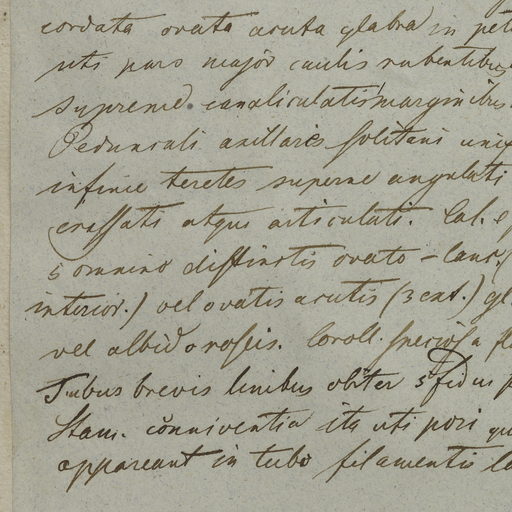 cordata ovata acuta glabra in pet
uti pars major caulis rubentibus
supreme canaliculatis marginibus
Pedunculi axillares solitarii unif
infime teretes superne angulati
crassati atque articulati. Cal. 
5 omnino distinctis ovato-lanc.
interior.) vel ovatis acutis (3 ext.) gl
vel albido roseis. Coroll. speciosa
Tubus brevis limbus obiter 5 fidus
Stam. conniventia ita uti pori
appareant in tubo filamentis